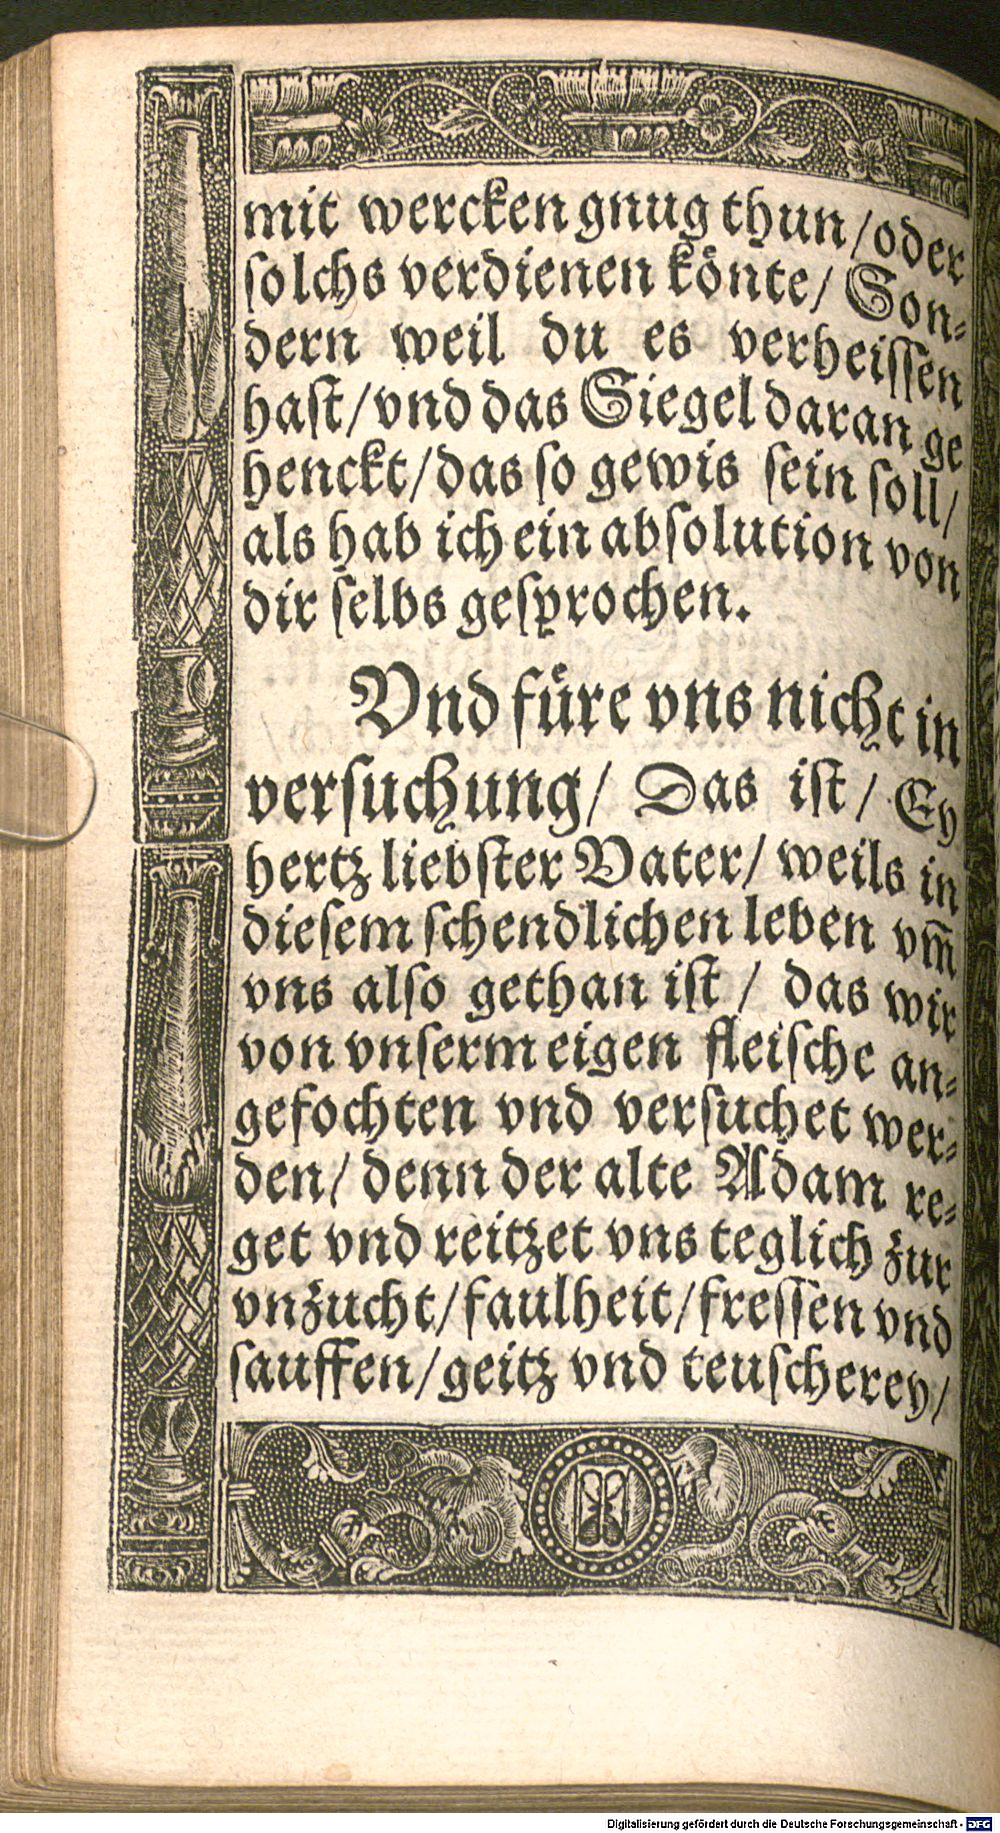 mit wercken gnug thun/oder
solchs verdienen könte/ Son⸗
dern weil du es verheissen
hast/vnd das Siegel daran ge
henckt/das so gewis sein soll/
als hab ich ein absolution von
dir selbs gesprochen.
Vnd füre vns nicht in
versuchung/ Das ist/ Ey
hertz liebster Vater/ weils in
diesem schendlichen leben vm̄
vns also gethan ist / das wir
von vnserm eigen fleische an⸗
gefochten vnd versuchet wer⸗
den/ denn der alte Adam re⸗
get vnd reitzet vns teglich zur
vnzucht/faulheit/fressen vnd
sauffen/geitz vnd teuscherey/
Digitalisierung gefördert durch die Deutsche Forschungsgemeinschaft - DFG